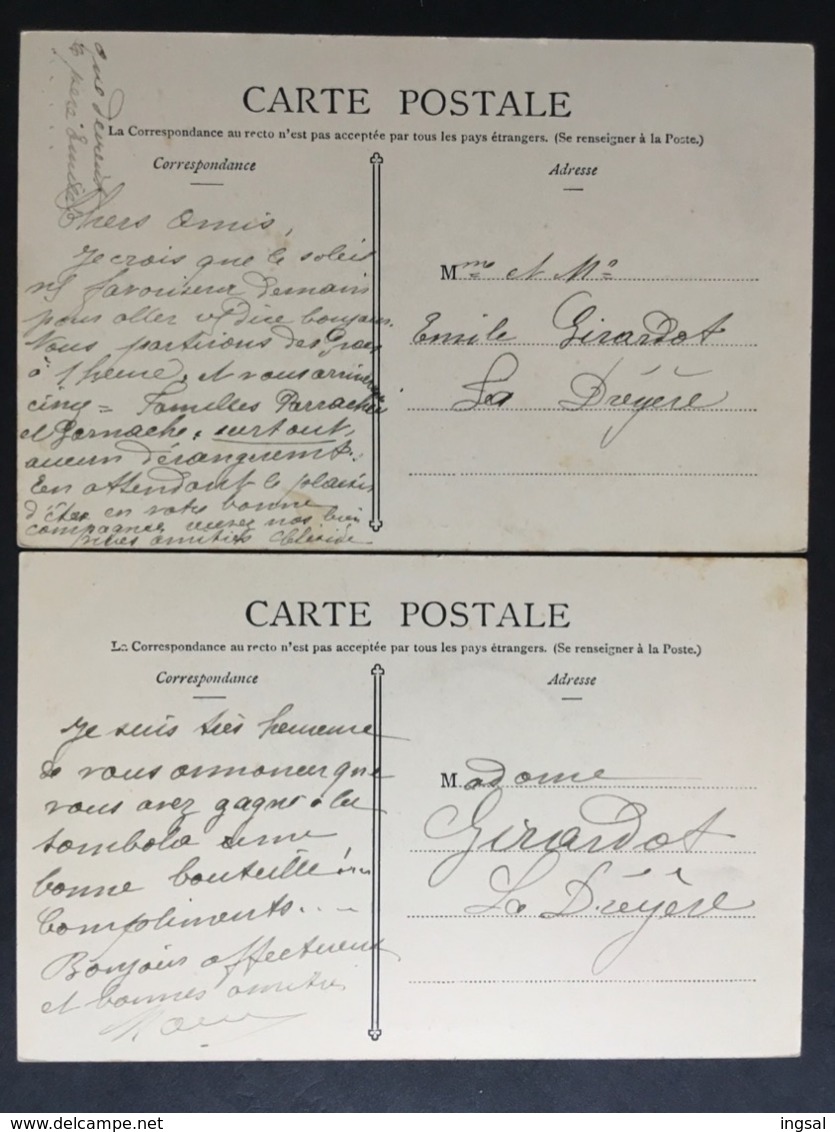 que devient
le père Emile
CARTE POSTALE
La Correspondance au recto n'est pas acceptée par tous les pays étrangers. (Se renseigner à la Poste.)
Correspondance
Adresse
Chers Amis,
Je crois que le soleil
favoriser demain
pour aller dire bonjour.
Nous partirons des
à 1 heure, et nous arriverons
cinq = Familles Parrache
et Garnache, surtout,
aucun dérangement.
En attendant le plaisir
d'être en votre bonne
compagnie, recevez nos bien
amitiés
Mme et Mr
Emile Girardot
La Dréyère
CARTE POSTALE
La Correspondance au recto n'est pas acceptée par tous les pays étrangers. (Se renseigner à la Poste.)
Correspondance
Adresse
Je suis très heureuse
de vous annoncer que
vous avez gagné à la
tombola une
bonne bouteille!...
Compliments...
Bonjour affectueux
et bonnes amitiés
Madame
Girardot
La Dréyère
delcampe.net
ingsal